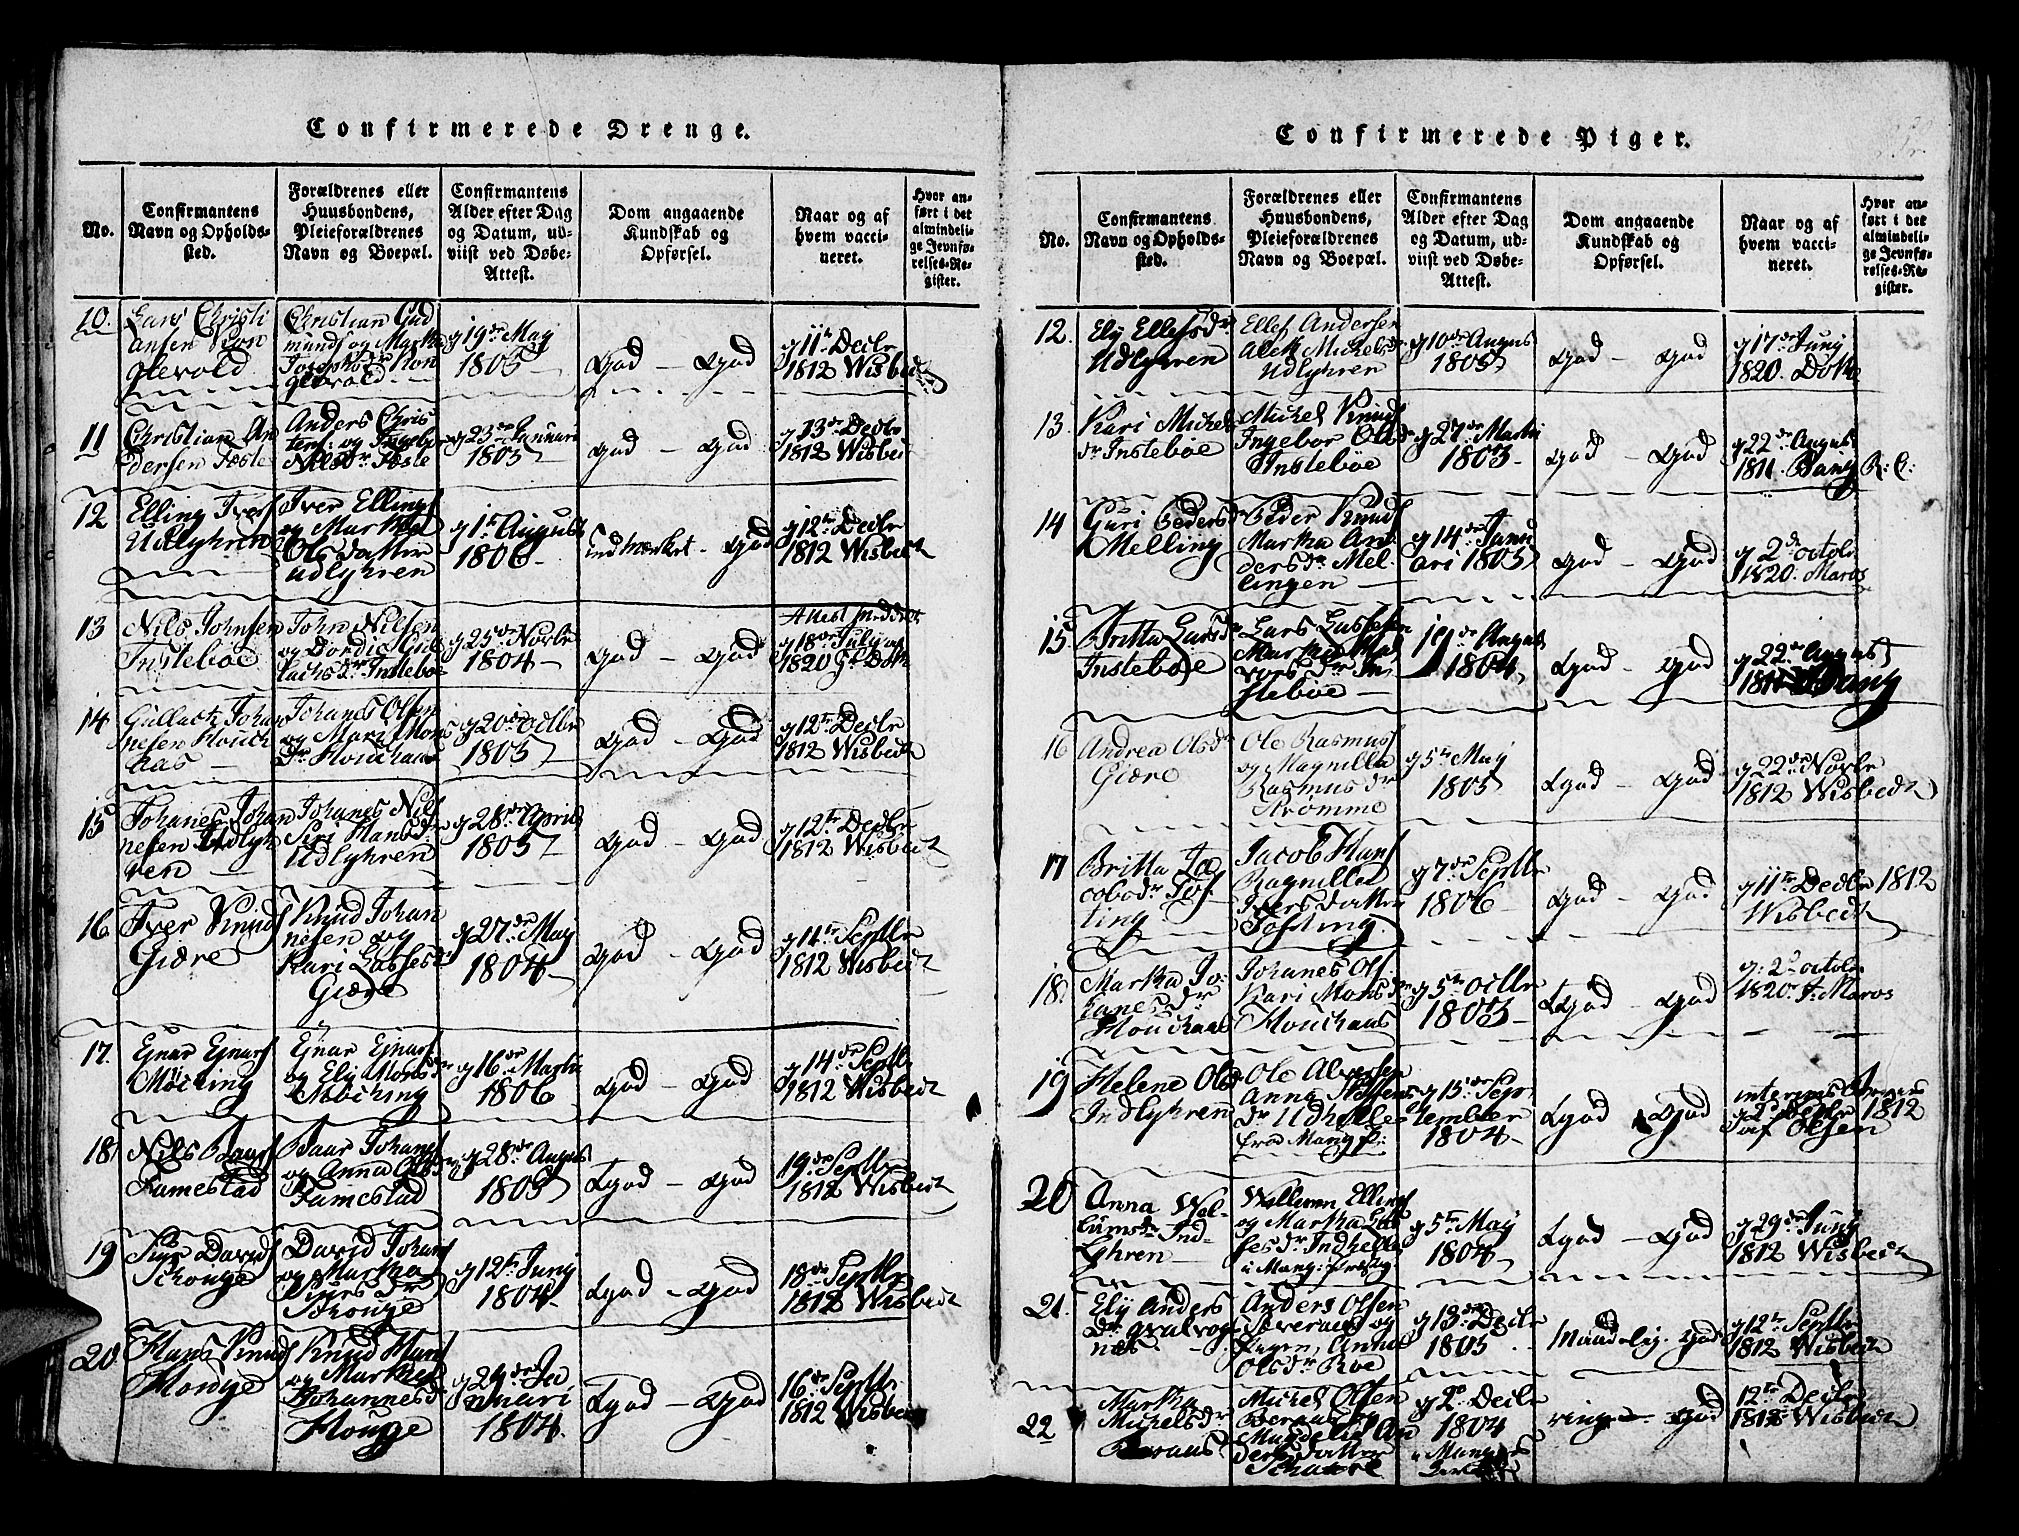 Confirmerede Drenge.
No.
Confirmantens
Navn og Opholds-
sted.
Forældrenes eller
Huusbondens,
Pleieforældrenes
Navn og Boepæl.
Confirmantens
Alder efter Dag
og Datum, ud-
viist ved Døbe-
Attest.
Dom angaaende
Kundskab og
Opførsel.
Naar og af
hvem vacci-
neret.
Hvor an-
ført i det
almindeli-
ge Jevnfø-
relses-Re-
gister.
10.
Lars Christi
ansen Kon
glevold
Christian Gud
munds og Martha
Josephsdr Kon
glevold
19de May
1805
God - God
11te Decbr
1812 Wisbech
11
Christian An
dersen Toste
Anders Chris
tens: og Ingebor
Nilsdr Toste
23de Januari
1805
God - God
13de Decbr
1812 Wisbech
12
Elling Ivers
Udlyhren
Iver Ellings
og Martha
Olsdatter
Udlyhren
1te August
1806
Udmærket - God
12te Decbr
1812 Wisbech
13
Nils Johnsen
Instebøe
John Nilsen
og Dordis
Instebøe
25de Novbr
1804
God - God
Attest
18de July
1820
14
Gullach Johan
nesen Houck
has
Johanes Olsen
og Mari Mons
dr Houchaas
20de Octbr
1805
God - God
12te Decbr
1812 Wisbech
15
Johanes Johan
nesen Udlyh
ren
Johanes Nils
Siri Hansdr
Udlyhren
28de April
1805
God - God
12te Decbr
1812 Wisbech
16
Iver Knuds
Giøre
Knud Johan
nesen og
Kari Lassesdr
Giøre
27de May
1804
God - God
11te Septbr
1812 Wisbech
17.
Ejnar Ejnars
Møcking
Ejnar Ejnars
og Ely Monsdr
Møcking
16de Martii
1806
God - God
14de Septbr
1812 Wisbech
18
Nils Baars
Famestad
Baar Johans
og Anna Olsdr
Famestad
28de Augus
1805
God - God
19de Septbr
1812 Wisbech
19
Siur Davids
Schouge
David Johans
og Martha
Siursdr
Schouge
12te Juny
1804
God - God
18de Septbr
1812 Wisbech
20
Hans Knuds
Houge
Knud Hans
og Marthe
Johannesdr
Houge
24de Ja
nuari
1804
God - God
16de Septbr
1812 Wisbech
Confirmerede Piger.
No.
Confirmantens
Navn og Opholds-
sted.
Forældrenes eller
Huusbondens,
Pleieforældrenes
Navn og Boepæl.
Confirmantens
Alder efter Dag
og Datum, ud-
viist ved Døbe-
Attest.
Dom angaaende
Kundskab og
Opførsel.
Naar og af
hvem vacci-
neret.
Hvor an-
ført i det
almindeli-
ge Jevnfø-
relses-Re-
gister.
12.
Ely Ellefsdr
Udlyhren
Ellef Andersen
Alett Michelsdr
Udlyhren
10de Augus
1805
God - God
17de Juny
1820.
13.
Kari Michels
dr Instebøe
Michel Knuds
Ingebor Olsdr
Instebøe
27de Martii
1805
God - God
22de Augus
1811 Bang
14
Guri Pedersdr
Melling
Peder Knuds
Martha An
dersdr Mel
lingen
14de Janu
ari 1805
God - God
2de octobr
1820. Maros
15
Britta Larsdr
Instebøe
Lars Lassesen
Martha
In
stebøe
19de Augus
1804
God - God
22de Augus
1811 Bang
16
Andrea Olsdr
Giøre
Ole Rasmus
og Magnilla
Rasmusdr
Strømme
5te May
1805
God - God
22de Novbr
1812 Wisbech
17
Britta Ja
cobsdr Tof
ting
Jacob Hans
Ragnilla
Iversdatter
Tofting
7de Septbr
1806
God - God
11te Decbr 1812
Wisbech
18.
Martha Jo
hanesdr
Houchaas
Johanes Ols
Kari Monsdr
Houchaas
5te Octbr
1805
God - God
2de octobr
1820 Maros
19
Helene Olsdr
Indlyhren
Ole Alversen
Anna Steffens
dr Udhelle
Mang pr:
15de Sep
tember
1804
God - God
2de Decbr 1812
af Olsen
20
Anna Wel
lumsdr Ind
lyhren
Wellum Ellings
og Martha Las
sesdr Indhelle
i Mang:
5te May
1804
God - God
29de Juny
1812 Wisbech
21.
Ely Anders
dr Qvalvog
næs
Anders Olsen
Anna
Olsdr Roe
13de Decbr
1805
Maadelig. God
12te Septbr
1812 Wisbech
22
Martha
Michelsdr
Michel Olsen
og
An
dersdatter
2de Decbr
1804
ringe - God
12te Decbr
1812 Wisbech